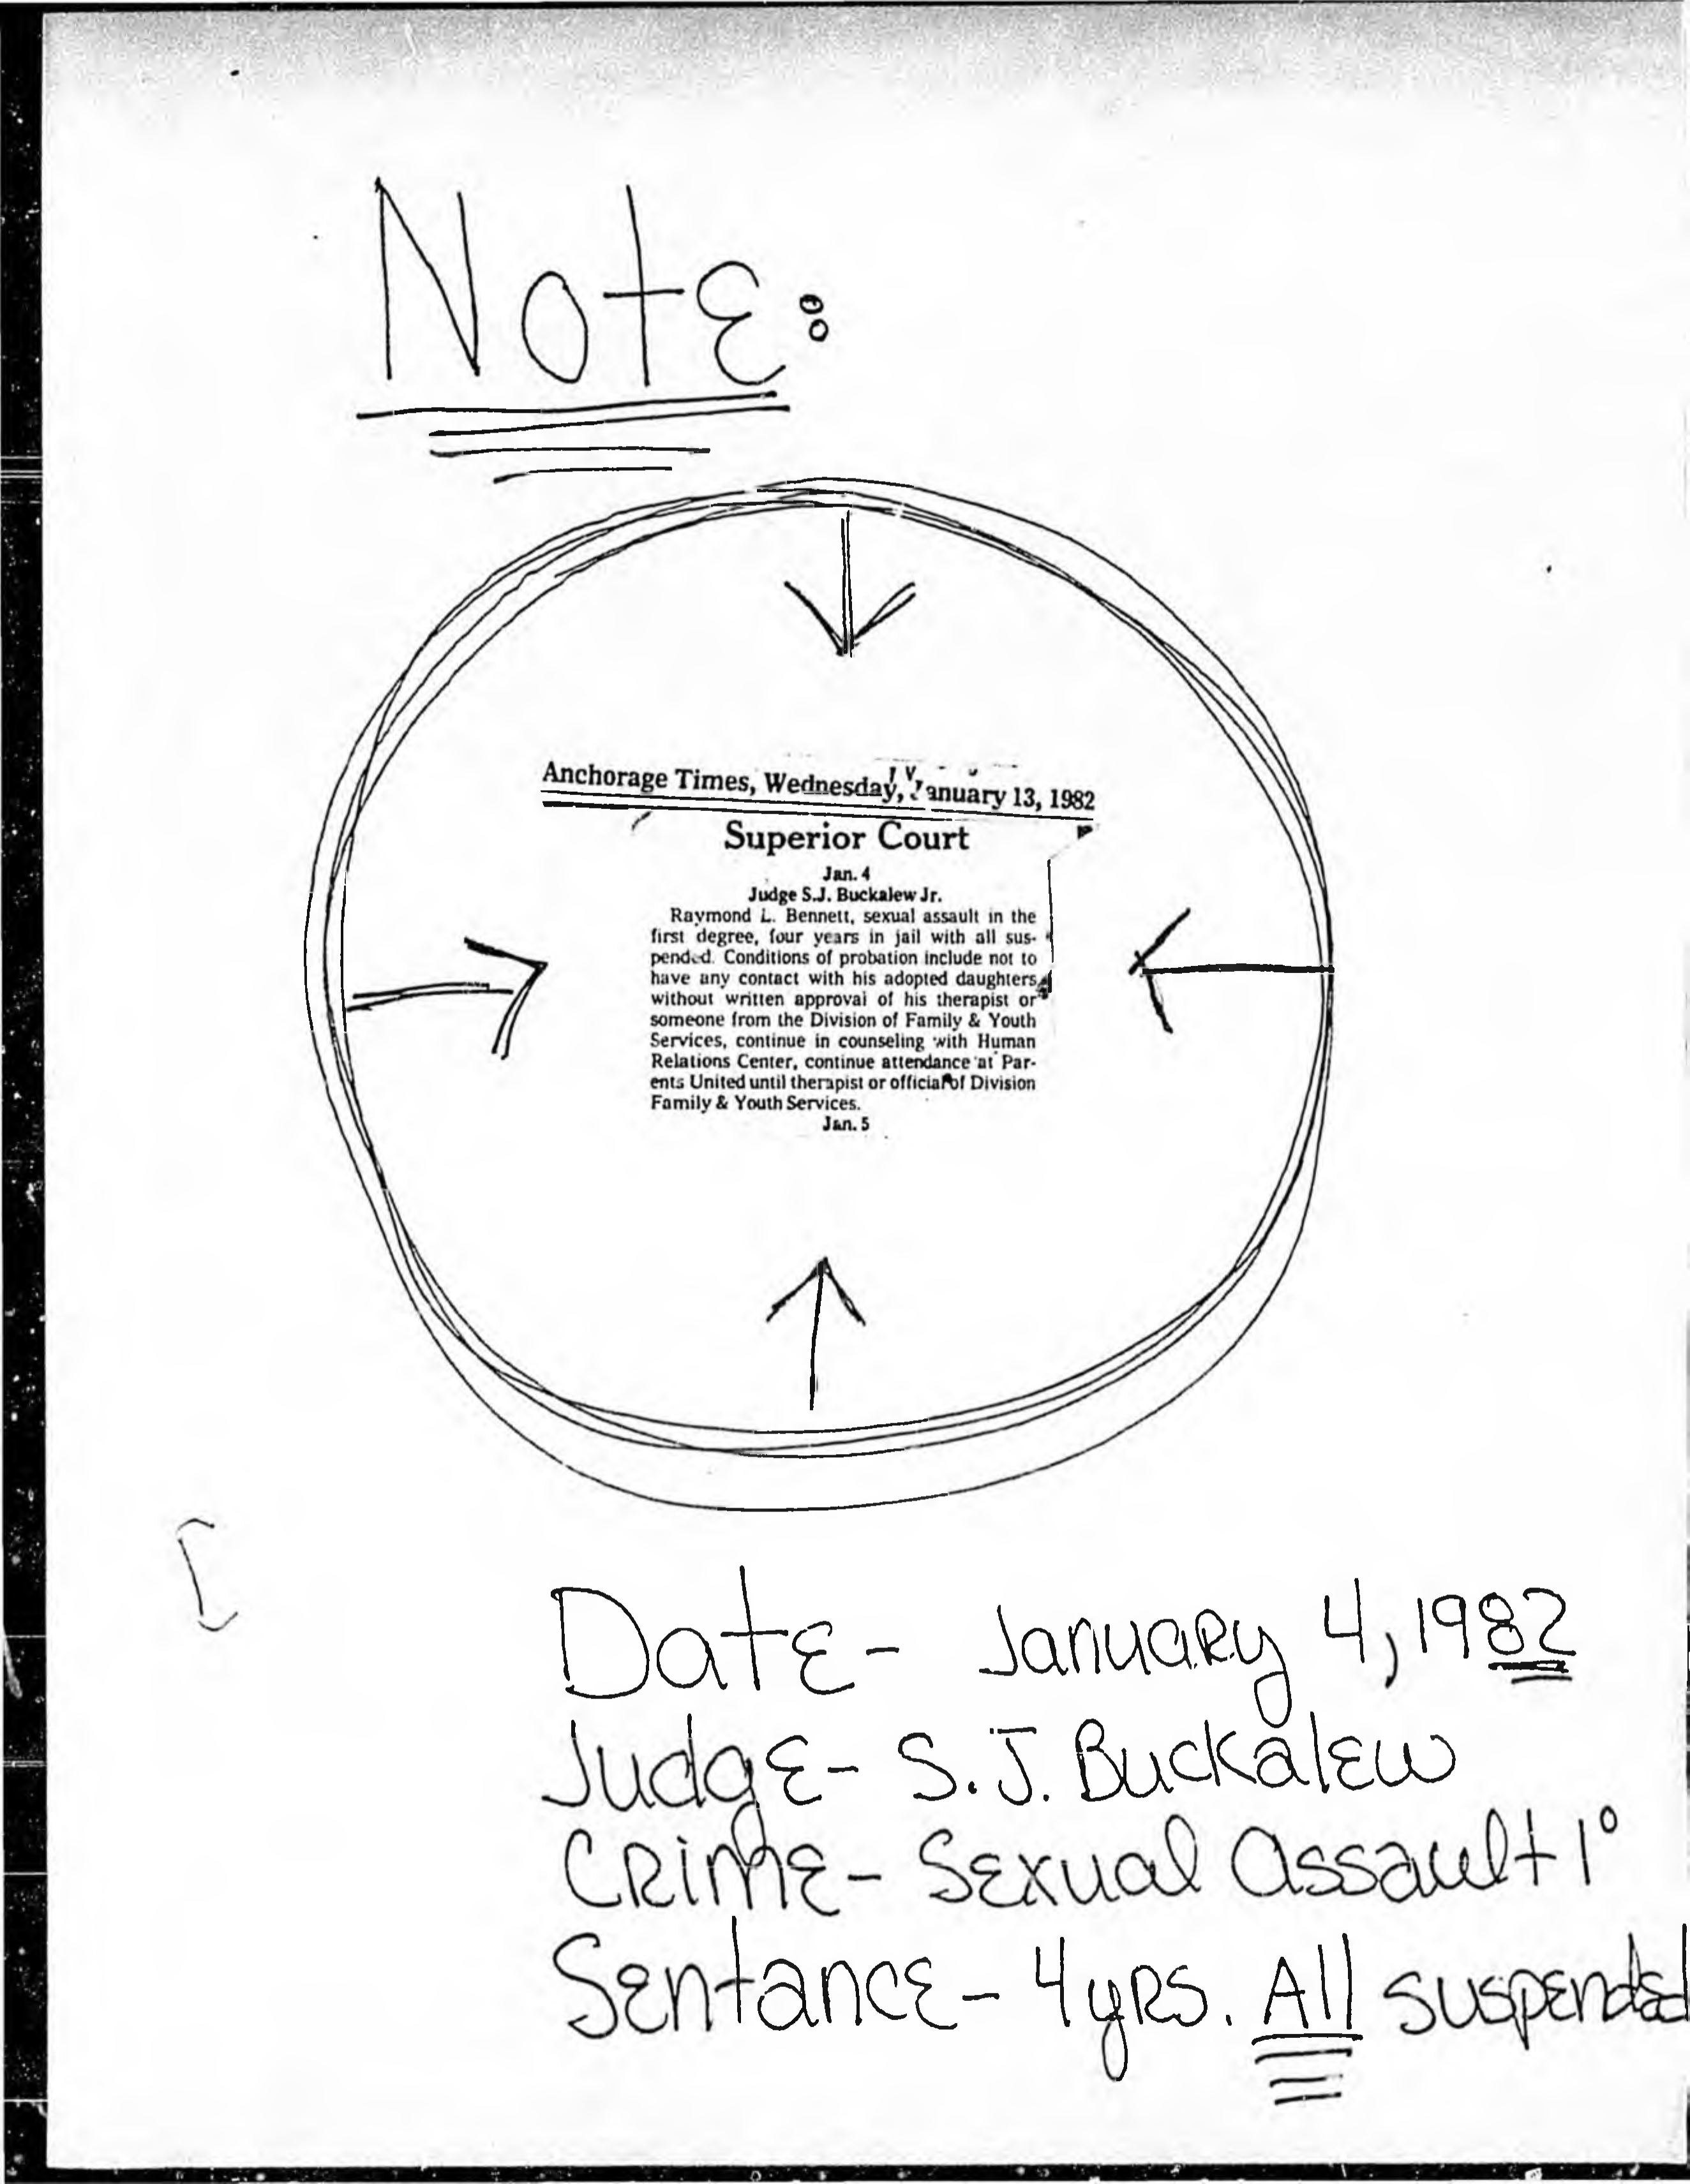 Note:
Anchorage Times, Wednesday, January 13, 1982
Superior Court
Jan. 4
Judge S.J. Buckalew Jr.
Raymond L. Bennett, sexual assault in the
first degree, four years in jail with all sus-
pended. Conditions of probation include not to
have any contact with his adopted daughters
without written approval of his therapist or
someone from the Division of Family & Youth
Services, continue in counseling with Human
Relations Center, continue attendance at Par-
ents United until therapist or official of Division
Family & Youth Services.
Jan. 5
Date - January 4, 1982
Judge - S. J. Buckalew
Crime - Sexual Assault 1°
Sentance - 4 yrs. All suspended